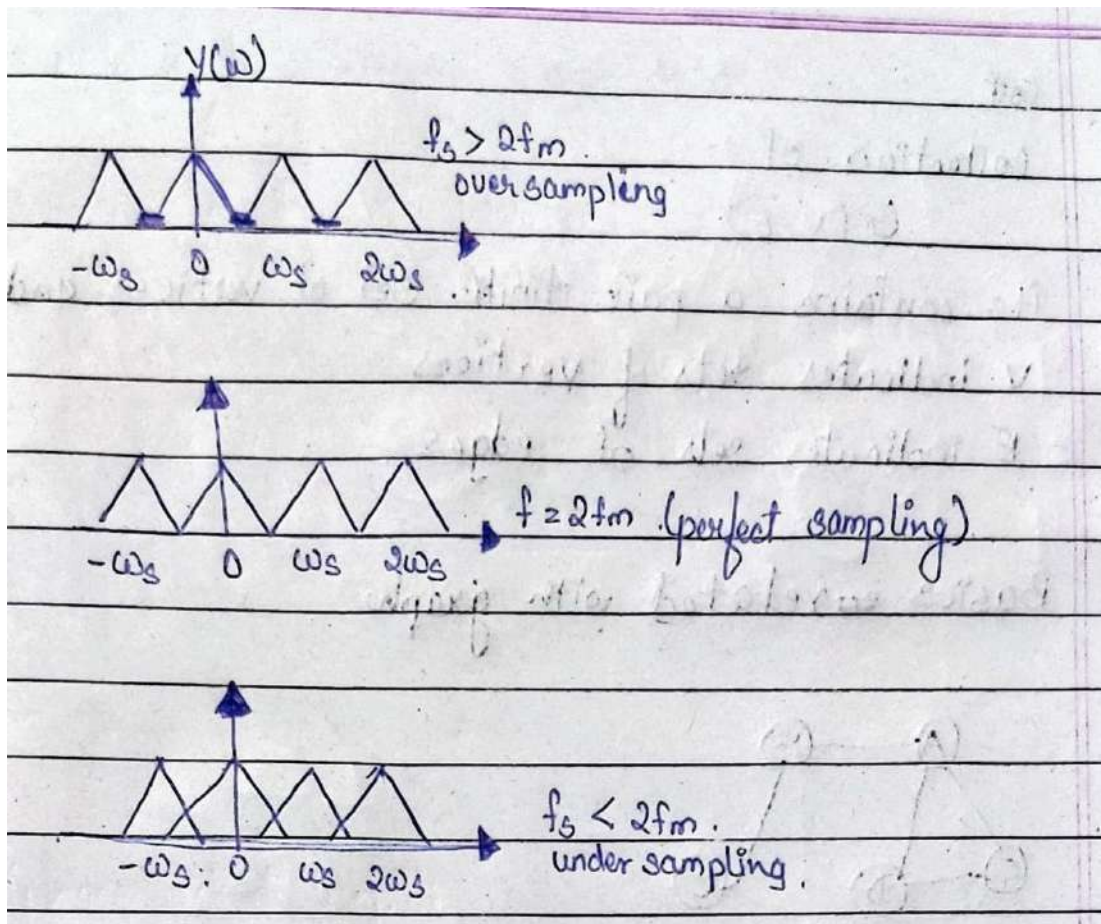 Y(ω)
fs > 2fm.
over sampling
-ωs 0 ωs 2ωs
f = 2fm (perfect sampling)
-ωs 0 ωs 2ωs
fs < 2fm.
under sampling.
-ωs 0 ωs 2ωs